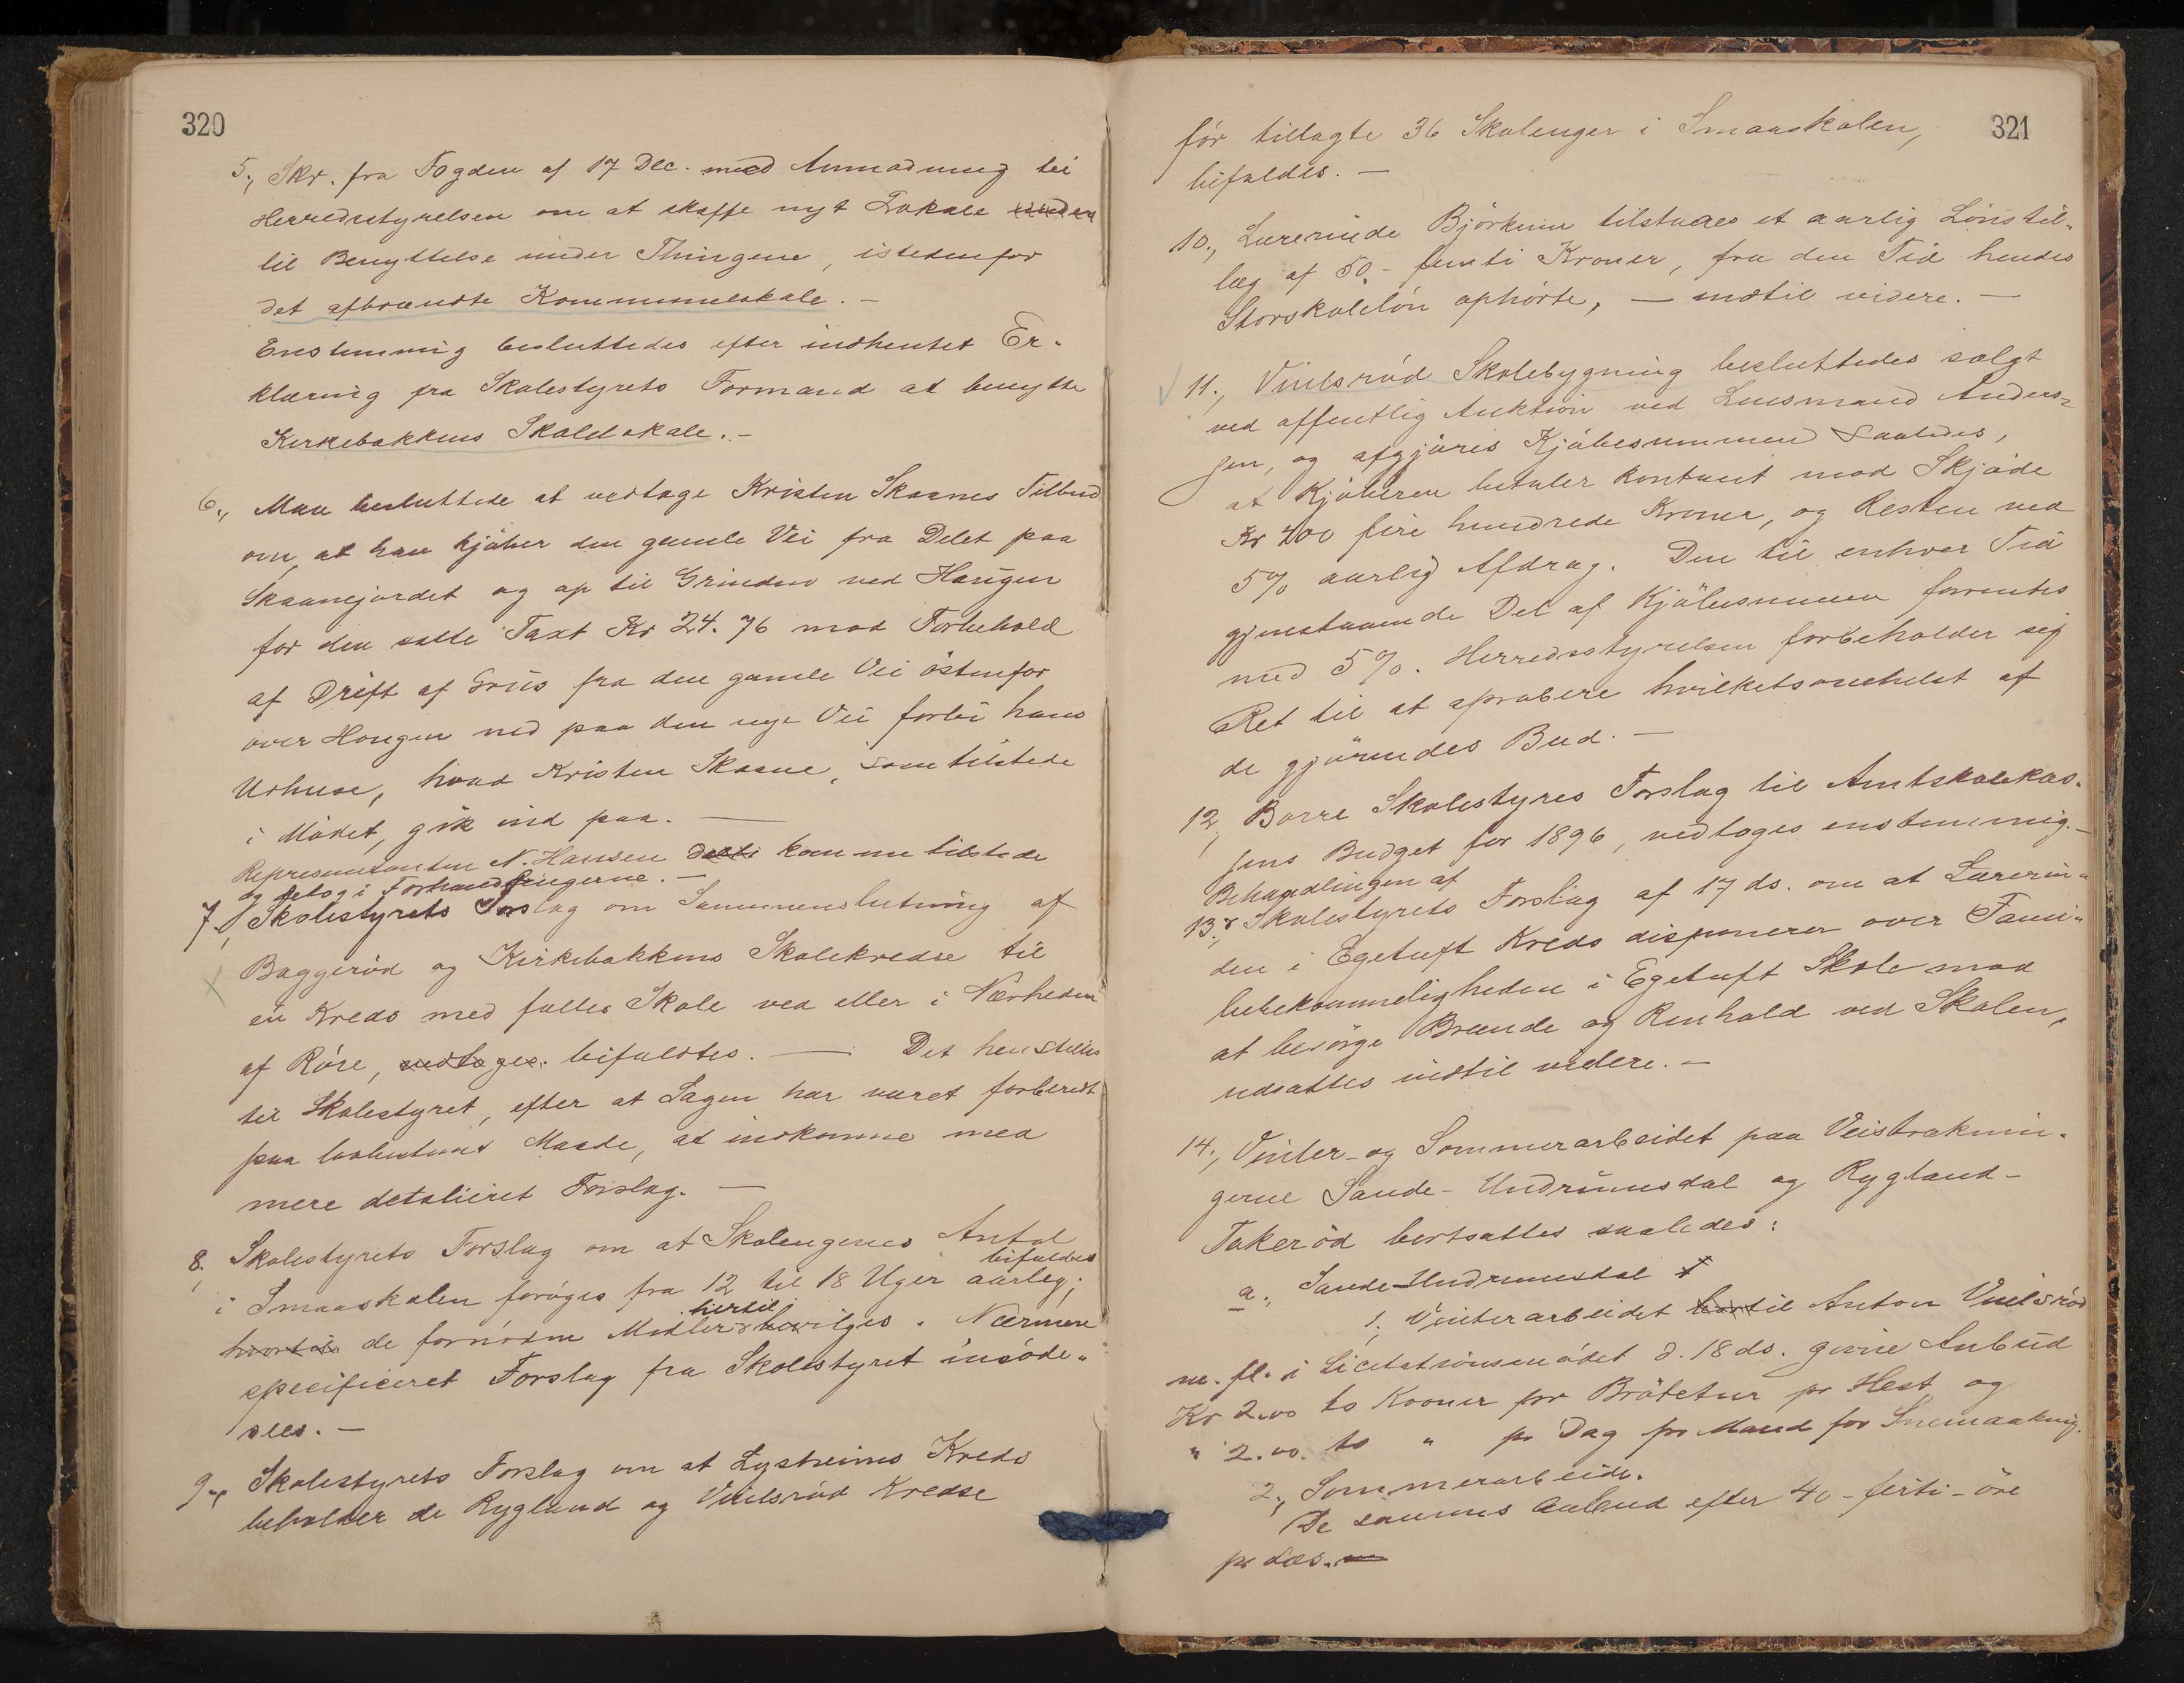 320
5., Skr. fra Fogden af 17 Dec. med Anmodning til
Herredsstyrelsen om at skaffe nyt Lokale
til Benyttelse under Thingene, istedenfor
det afbrændte Kommunelokale. —
Enstemmig besluttedes efter indhentet Er-
klæring fra Skolestyrets Formand at benytte
Kirkebakkens Skolelokale. —
6., Man besluttede at vedtage Kristen Skaanes Tilbud
om at han kjøber den gamle Vei fra Delet paa
Skaanejordet og op til Grinden ved Haugen
for den satte Taxt Kr 24.76 mod Forbehold
af Drift af Grus fra den gamle Vei östenfor
over Haugen ned paa den nye Vei forbi hans
Udhuse, hvad Kristen Skaane, som tilstede
i Mødet, gik ind paa. —
Repræsentanten N. Hansen kom nu tilstede
og deltog i Forhandlingerne. —
7., Skolestyrets Forslag om Sammenslutning af
Baggerød og Kirkebakkens Skolekredse til
en Kreds med fælles Skole ved eller i Nærheden
af Röre, vedtoges. bifaldtes. — Det henstilles
til Skolestyret, efter at Sagen har været forberedt
paa lovbestemt Maade, at indkomme med
mere detalieret Forslag. —
8., Skolestyrets Forslag om at Skolengenes Antal
bifaldes
i Smaaskolen forøges fra 12 til 18 Uger aarlig;
hertil
hvortil de fornödne Midler bevilges. Nærmere
specificeret Forslag fra Skolestyret imöde-
sees. —
9., Skolestyrets Forslag om at Lystheims Kreds
beholder de Rygland og Vivelsröd Kredse
321
før tillagte 36 Skolenger i Smaaskolen,
bifaldes. —
10., Lærerinde Björkum tilstaaes et aarlig Lönstil-
læg af 50 - femti Kroner, fra den Tid hendes
Storskolelön ophörte, — indtil videre. —
11., Vivelsröd Skolebygning besluttedes solgt
ved offentlig Auktion ved Lensmand Anders-
sen, og afgjöres Kjöbesummen saaledes,
at Kjøberen betaler kontant mod Skjöde
Kr 400 fire hundrede Kroner, og Resten ved
5% aarlig Afdrag. Den til enhver Tid
gjenstaaende Del af Kjöbesummen forrentes
med 5%. Herredsstyrelsen forbeholder sig
Ret til at aprobere hvilketsomhelst af
de gjörendes Bud. —
12., Borre Skolestyres Forslag til Amtskolekas-
sens Budget for 1896, vedtoges enstemmig. —
Behandlingen af
13., Skolestyrets Forslag af 17 ds. om at Lærerin-
den i Egetuft Kreds disponerer over Fami-
liebekvemmeligheden i Egetuft Skole mod
at besörge Brænde og Renhold ved Skolen,
udsattes indtil videre. —
14., Vinter- og Sommerarbeidet paa Veistræknin-
gerne Sande - Undrumsdal og Rygland -
Takeröd bortsattes saaledes:
a., Sande-Undrumsdal
1., Vinterarbeidet til Anton Vivelsröd
m. fl. i Licitationsmödet d. 18 ds. givne Anbud
Kr 2.00 to Kroner for Bröitetur pr Hest og
" 2.00. to " pr Dag pr Mand for Snemaakning.
2., Sommerarbeide.
De sammes Anbud efter 40 - firti - öre
pr Læs.